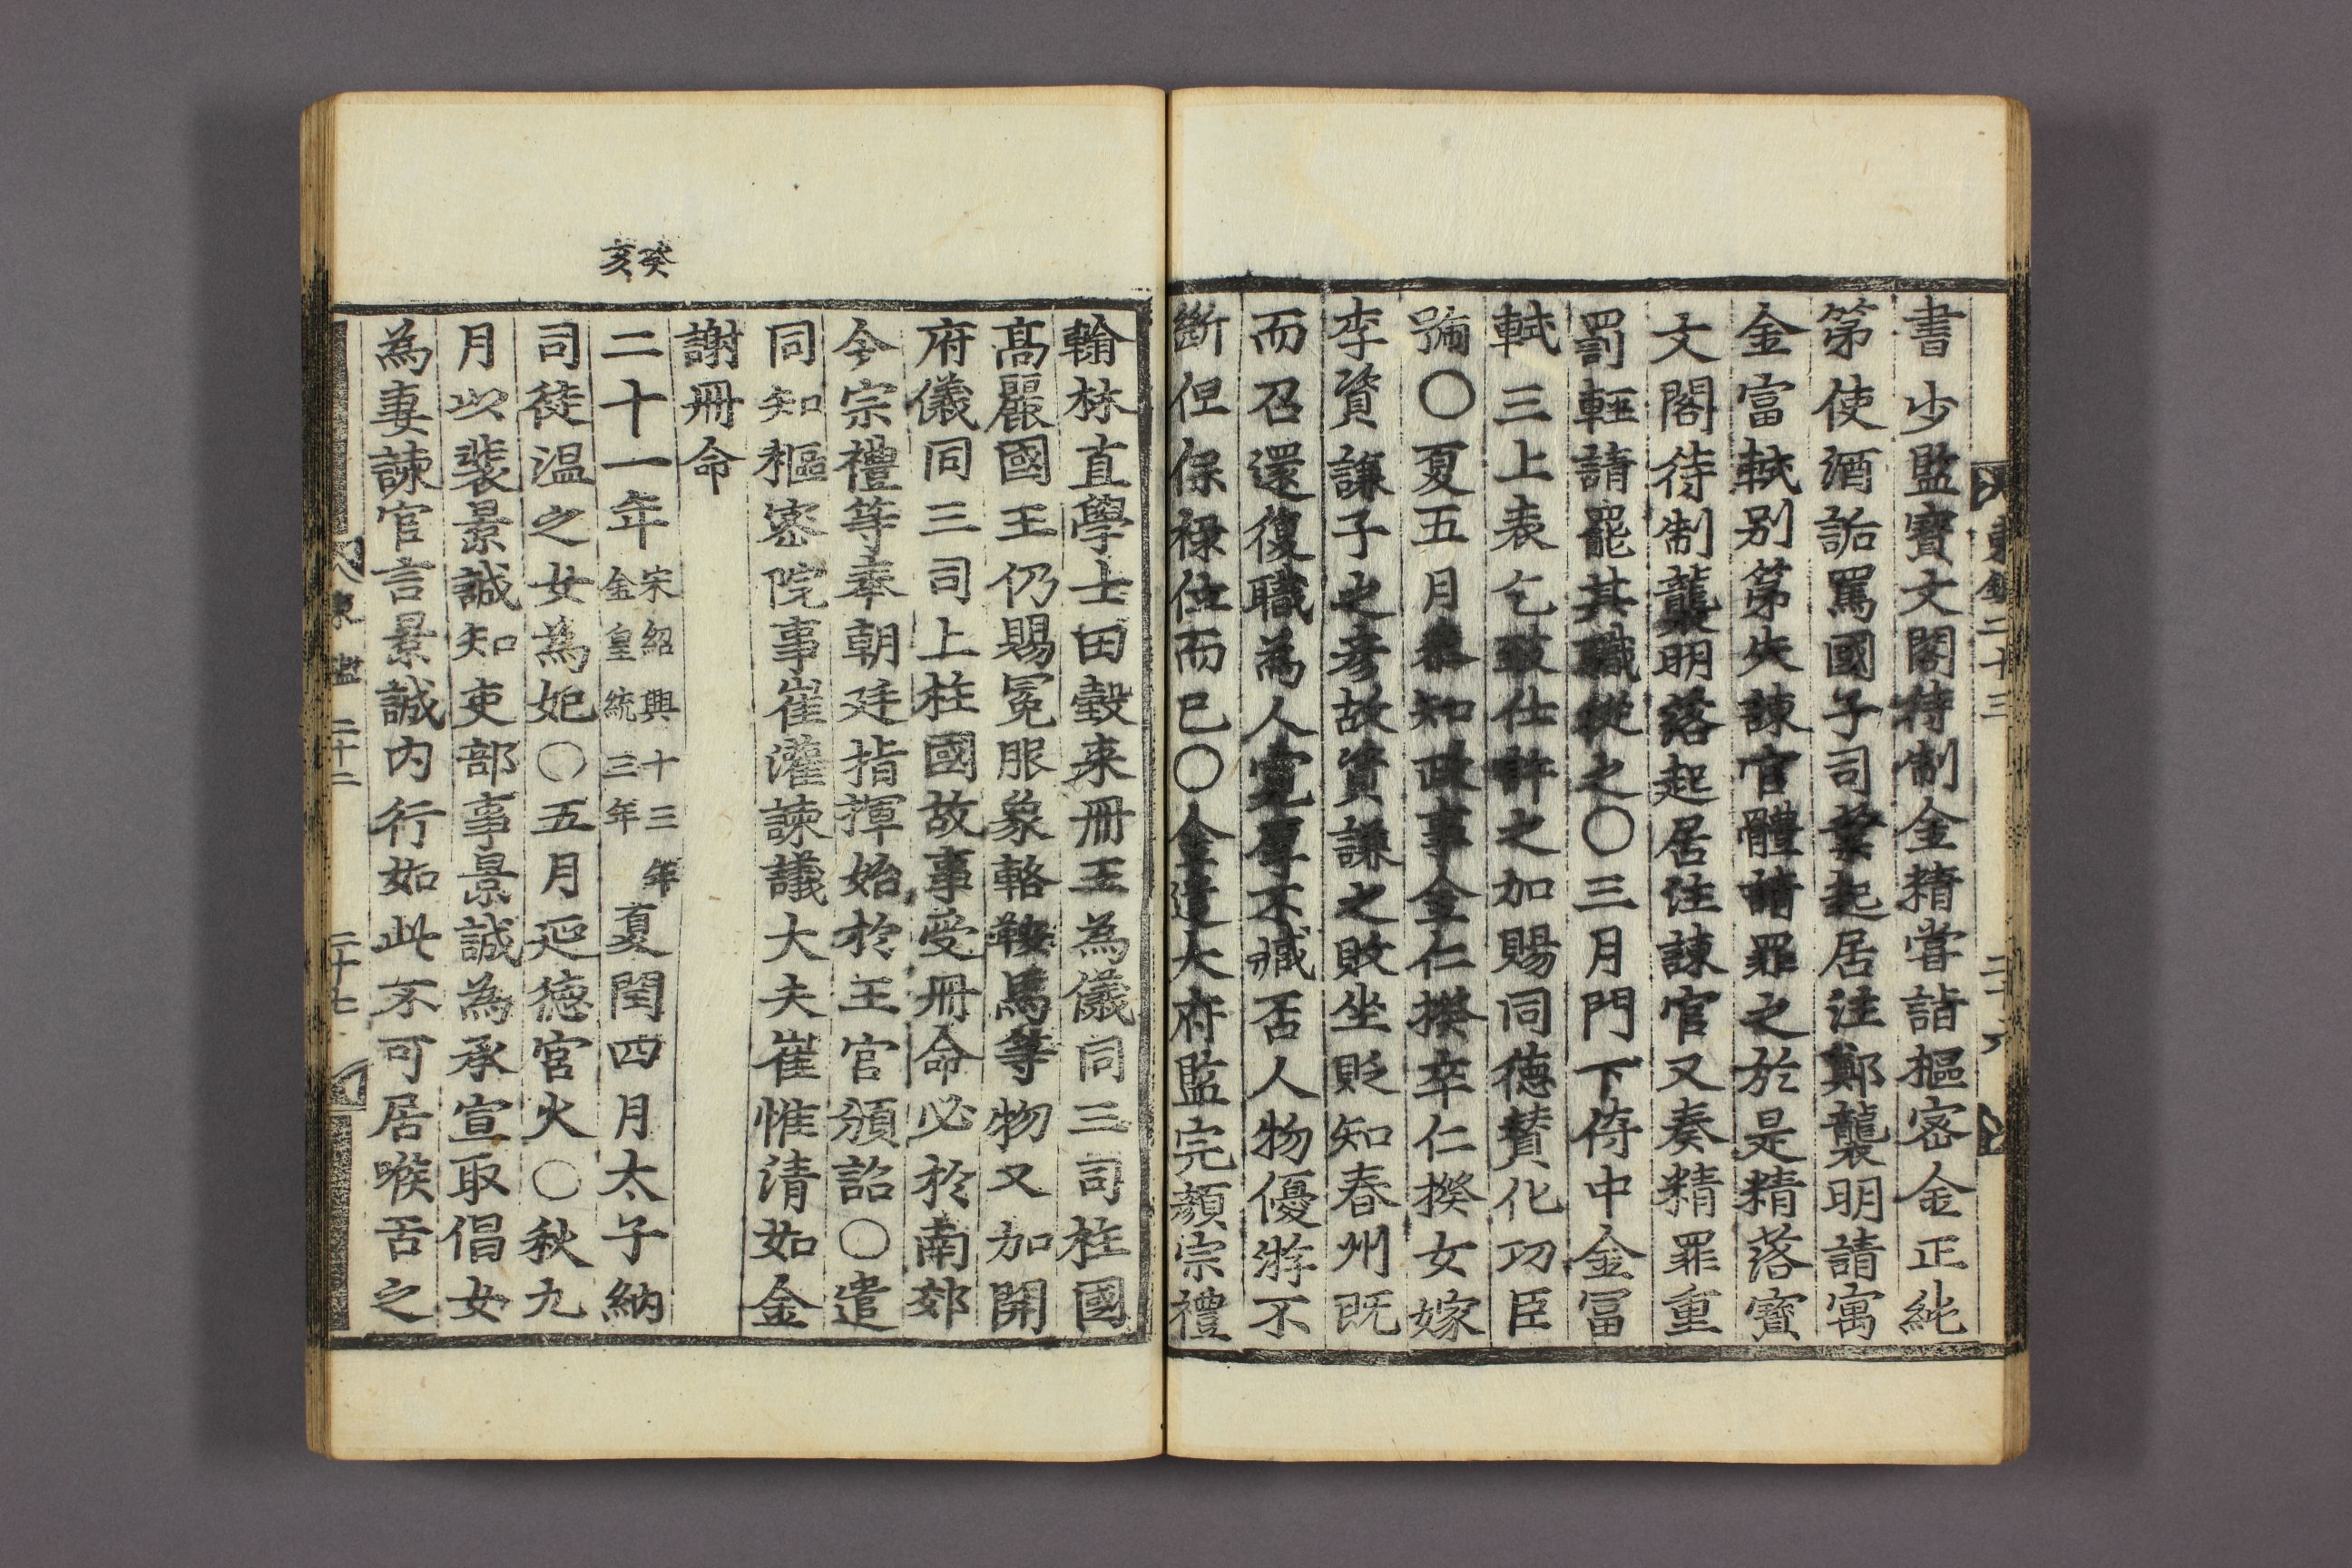 書少監寶文閣待制金精嘗詣樞密金正純
第使酒詬罵國子司業起居注鄭襲明請寓
金富軾别第失諫官體請罪之於是精落寳
文閣待制襲明落起居注諫官又奏精罪重
罰輕請罷其職從之〇三月門下侍中金冨
軾三上表乞致仕許之加賜同德賛化㓛臣
號〇夏五月叅知政事金仁揆卒仁揆女嫁
李資謙子之彦故資謙之敗坐貶知春州旣
而召還復職為人寬厚不臧否人物優游不
斷但保祿位而已〇金遣大府監完顔宗禮
東鑑二十三
二十六
翰林直學士田瑴来冊王為儀同三司柱國
髙麗國王仍賜冕服象輅鞍馬等物又加開
府儀同三司上柱國故事受冊命必於南郊
今宗禮等奉朝廷指揮始於王官頒詔〇遣
同知樞密院事崔灌諫議大夫崔惟清如金
謝冊命
癸亥
二十一年宋紹興十三年金皇統三年夏閏四月太子納
司徒温之女為妃〇五月延德宮火〇秋九
月以裴景誠知吏部事景誠為承宣取倡女
為妻諫官言景誠内行如此不可居喉舌之
東鑑二十三
二十七